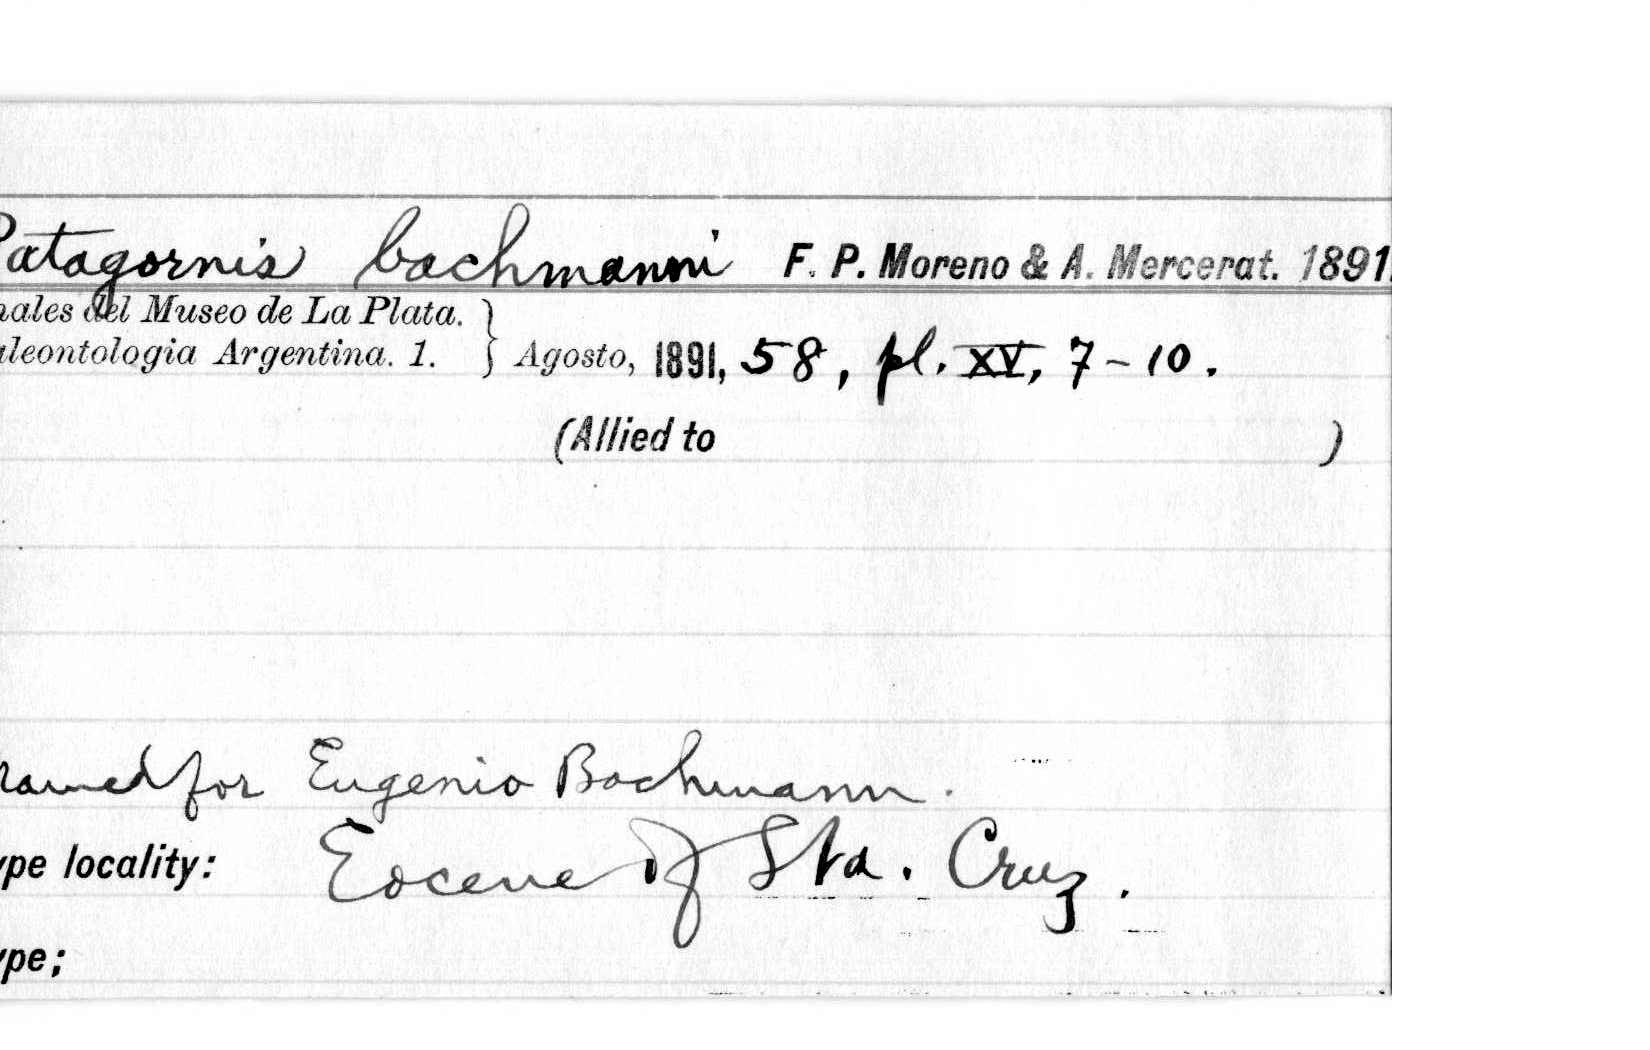 Patagornis bachmanni F. P. Moreno & A. Mercerat. 1891.
nales del Museo de La Plata.
aleontologia Argentina. 1. } Agosto, 1891, 58, pl. XV, 7-10.
(Allied to )
named for Eugenio Bachmann.
ype locality: Eocene of Sta. Cruz.
ype;